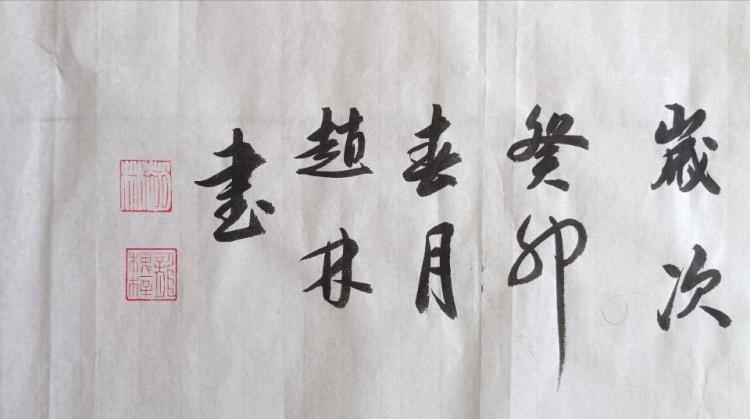 歲次
癸卯
春月
趙林
書